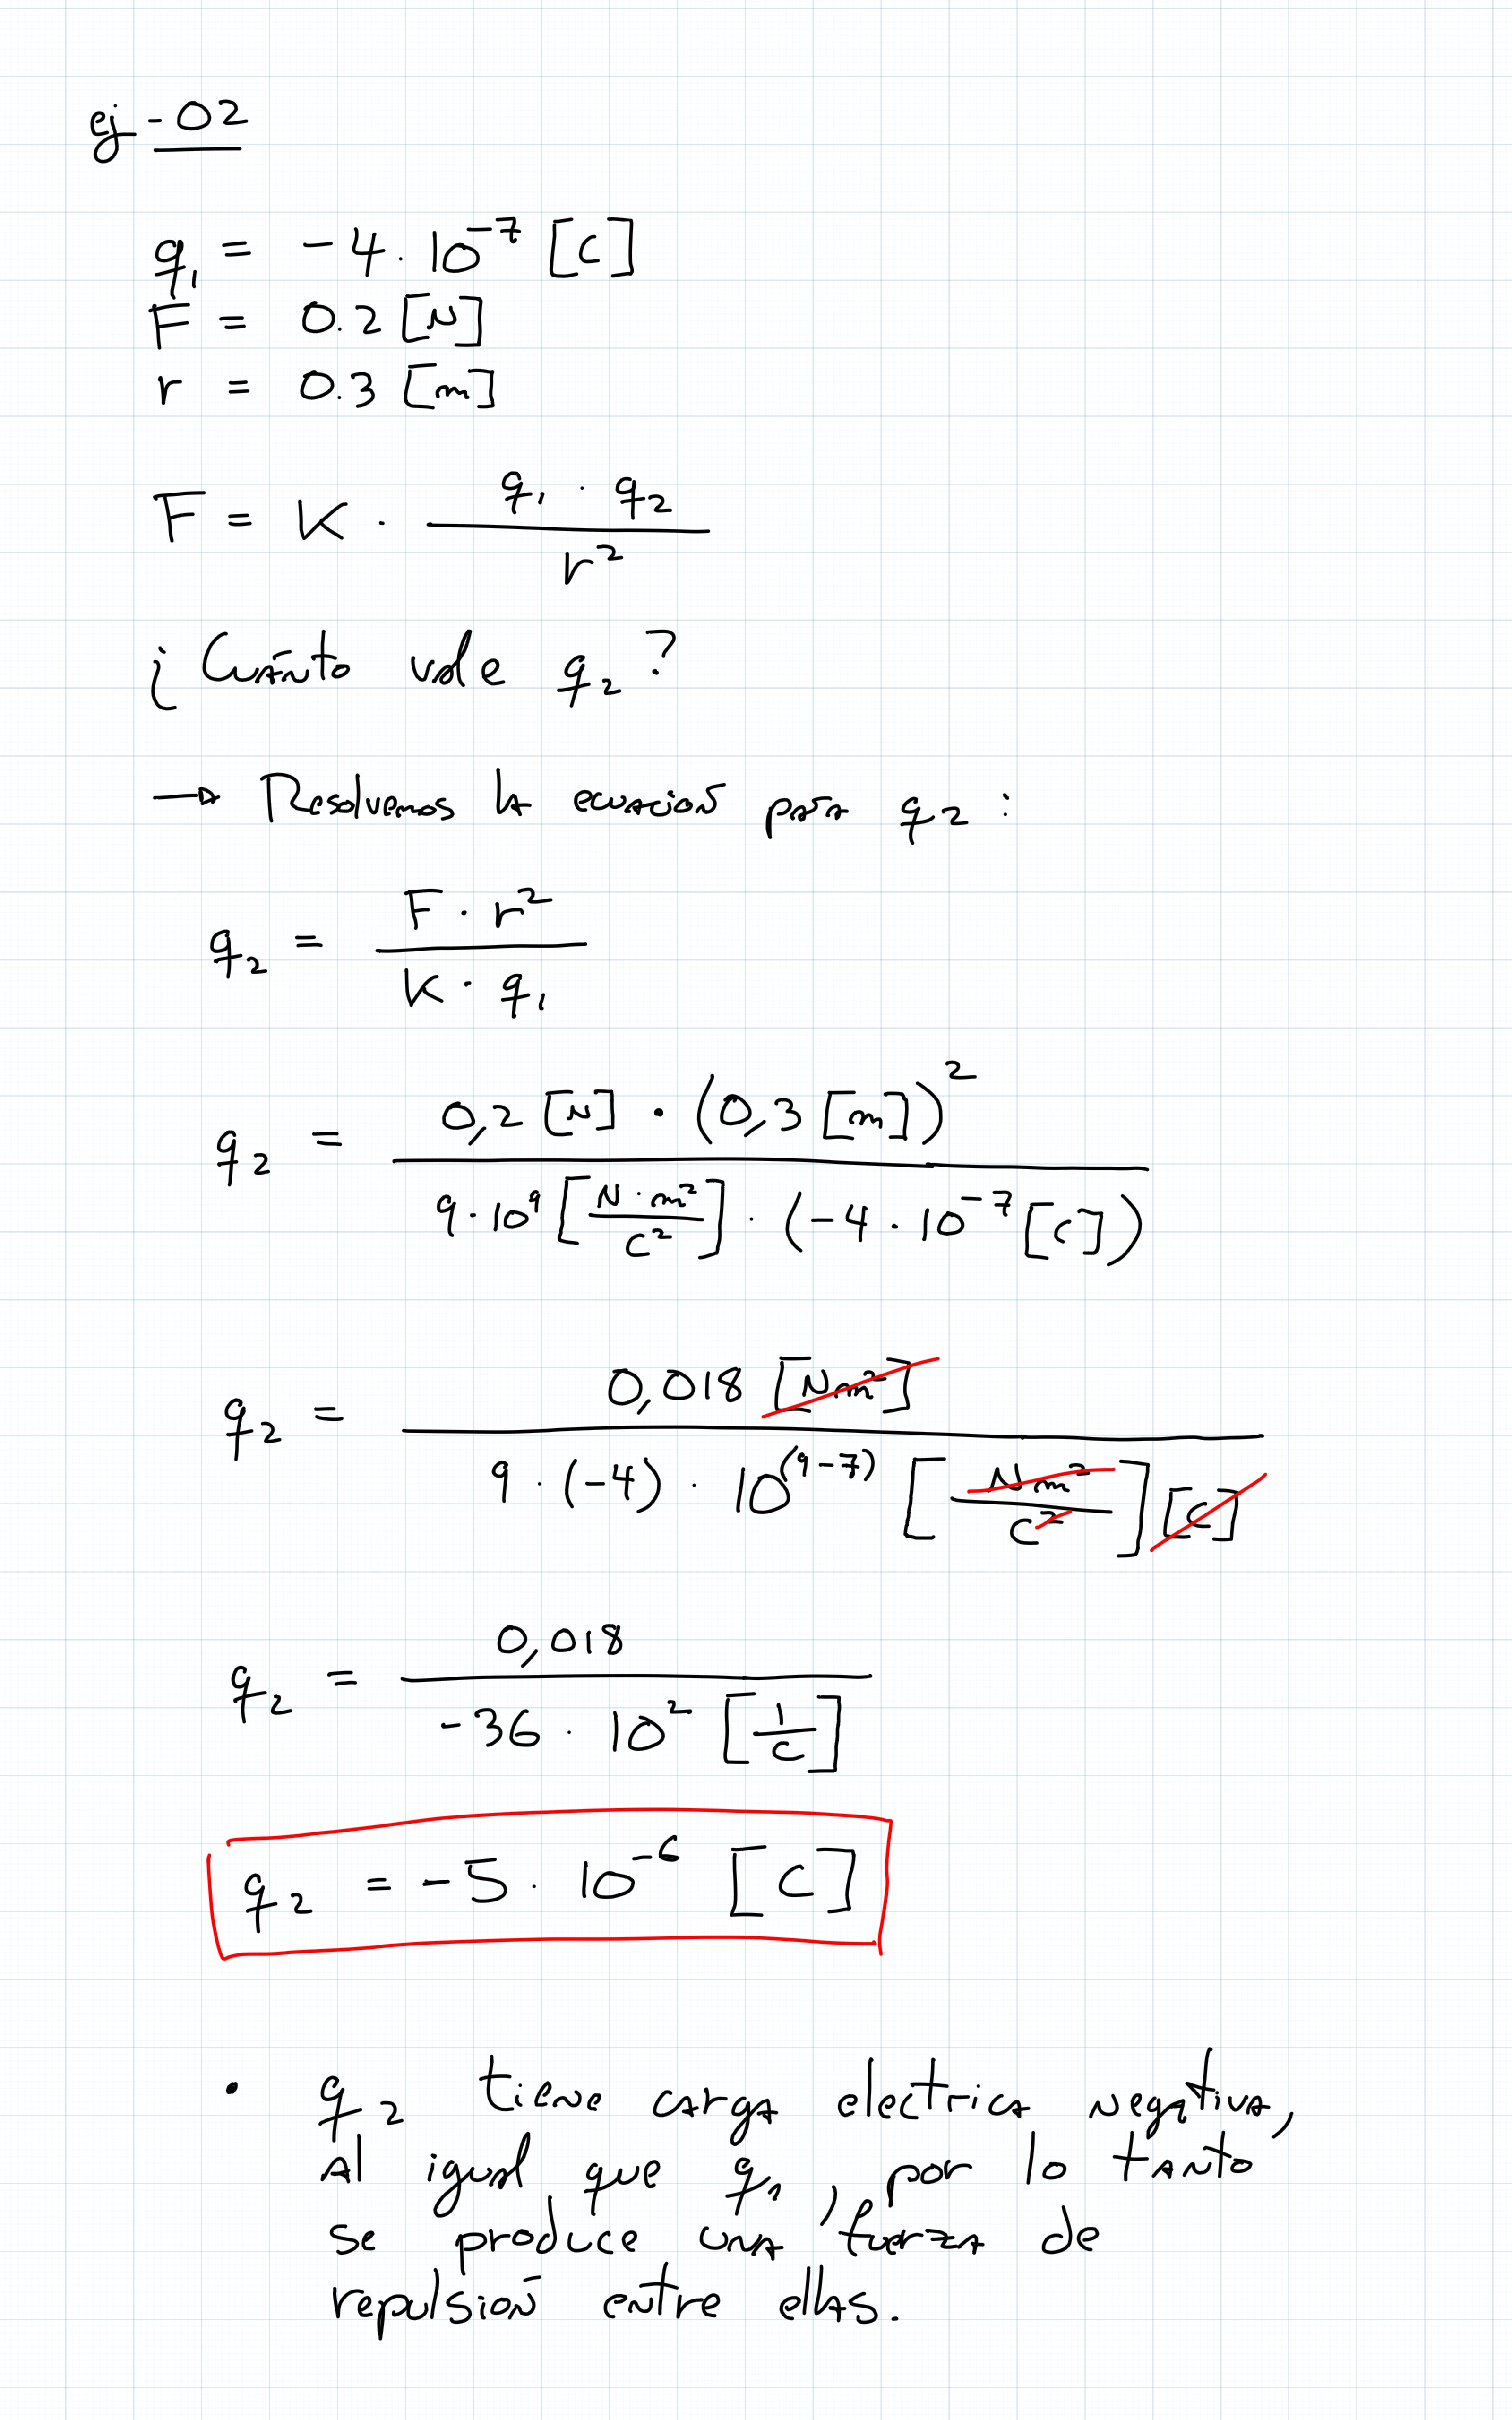 ej-02
q₁ = -4 · 10⁻⁷ [C]
F = 0.2 [N]
r = 0.3 [m]
F = K · (q₁ · q₂) / r²
¿Cuánto vale q₂?
→ Resolvemos la ecuación para q₂:
q₂ = (F · r²) / (K · q₁)
q₂ = (0,2 [N] · (0,3 [m])²) / (9·10⁹ [N·m²/C²] · (-4 · 10⁻⁷ [C]))
q₂ = (0,018 [Nm²]) / (9 · (-4) · 10⁽⁹⁻⁷⁾ [Nm²/C²] [C])
q₂ = 0,018 / (-36 · 10² [1/C])
q₂ = -5 · 10⁻⁶ [C]
• q₂ tiene carga electrica negativa,
al igual que q₁, por lo tanto
se produce una fuerza de
repulsión entre ellas.